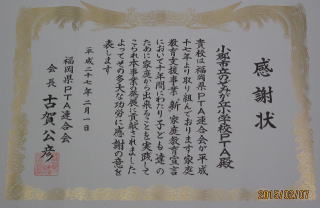 感謝状
小郡市立のぞみが丘小学校PTA殿
貴校は福岡県PTA連合会が平成
十七年より取り組んでおります家庭
教育支援事業「新家庭教育宣言」
において十年間にわたり子ども達の
ために家庭から出来ることを実践して
こられ本事業の発展に貢献されました
よってその多大な功労に感謝の意を
表します
平成二十七年二月一日
福岡県PTA連合会
会長 古賀公彦
2015/02/07